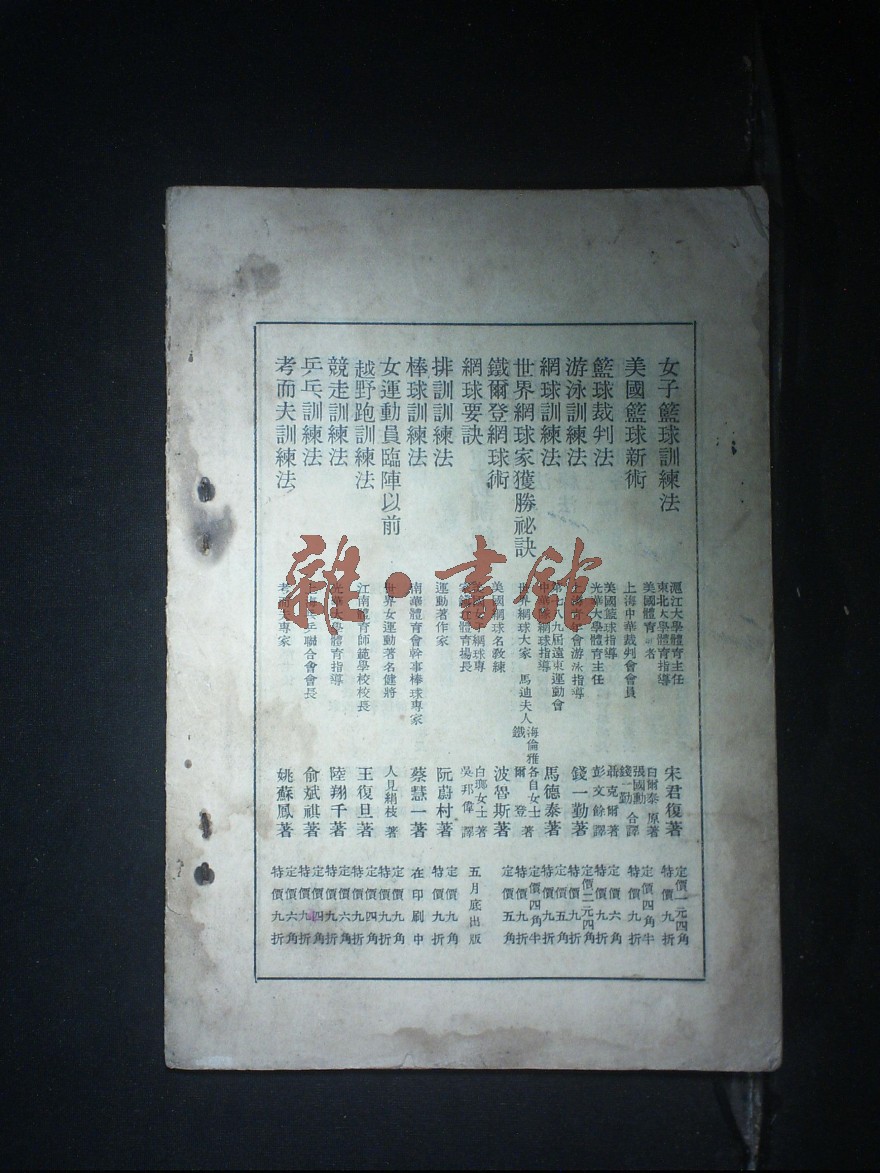 女子籃球訓練法
滬江大學體育主任
東北大學體育指導
宋君復著
定價一元四角
特價九折
美國籃球新術
美國體育 者
上海中華裁判會會員
白爾泰 原著
張國勳
錢一勤 合譯
定價四角半
特價九折
籃球裁判法
美國籃球指導
光華大學體育主任
聶克爾著
彭文餘譯
定價六角
特價九折
游泳訓練法
會游泳指導
錢一勤著
定價二元四角
特價九折
網球訓練法
九屆遠東運動會
網球指導
馬德泰著
定價五角
特價九折
世界網球家獲勝祕訣
世界網球大家 馬迪夫人 海倫雅各自女士著
定價四角半
鐵爾登網球術
美國網球名教練
鐵爾登
波魯斯著
定價五角
網球要訣
網球專
體育揚長
白瑯女士著
吳邦偉 譯
五月底出版
排訓訓練法
運動著作家
阮蔚村著
定價九角
特價九折
棒球訓練法
南華體育會幹事棒球專家
蔡慧一著
在印刷中
女運動員臨陣以前
世界女運動著名健將
人見絹枝 著
定價九角
特價九折
越野跑訓練法
江南體育師範學校校長
王復旦著
定價四角
特價九折
競走訓練法
光華大學體育指導
陸翔千著
定價六角
特價九折
乒乓訓練法
上海乒乓聯合會會長
俞斌祺著
定價四角
特價九折
考而夫訓練法
考而夫專家
姚蘇鳳著
定價六角
特價九折
雜·書館